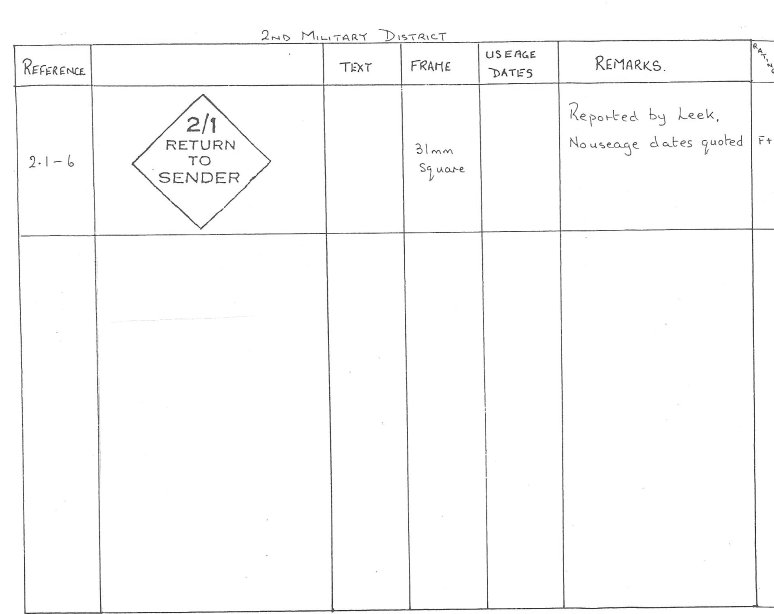 2ND MILITARY DISTRICT
REFERENCE
TEXT
FRAME
USEAGE
DATES
REMARKS.
RATING
2.1-6
2/1
RETURN
TO
SENDER
31mm
Square
Reported by Leek,
No useage dates quoted
F+